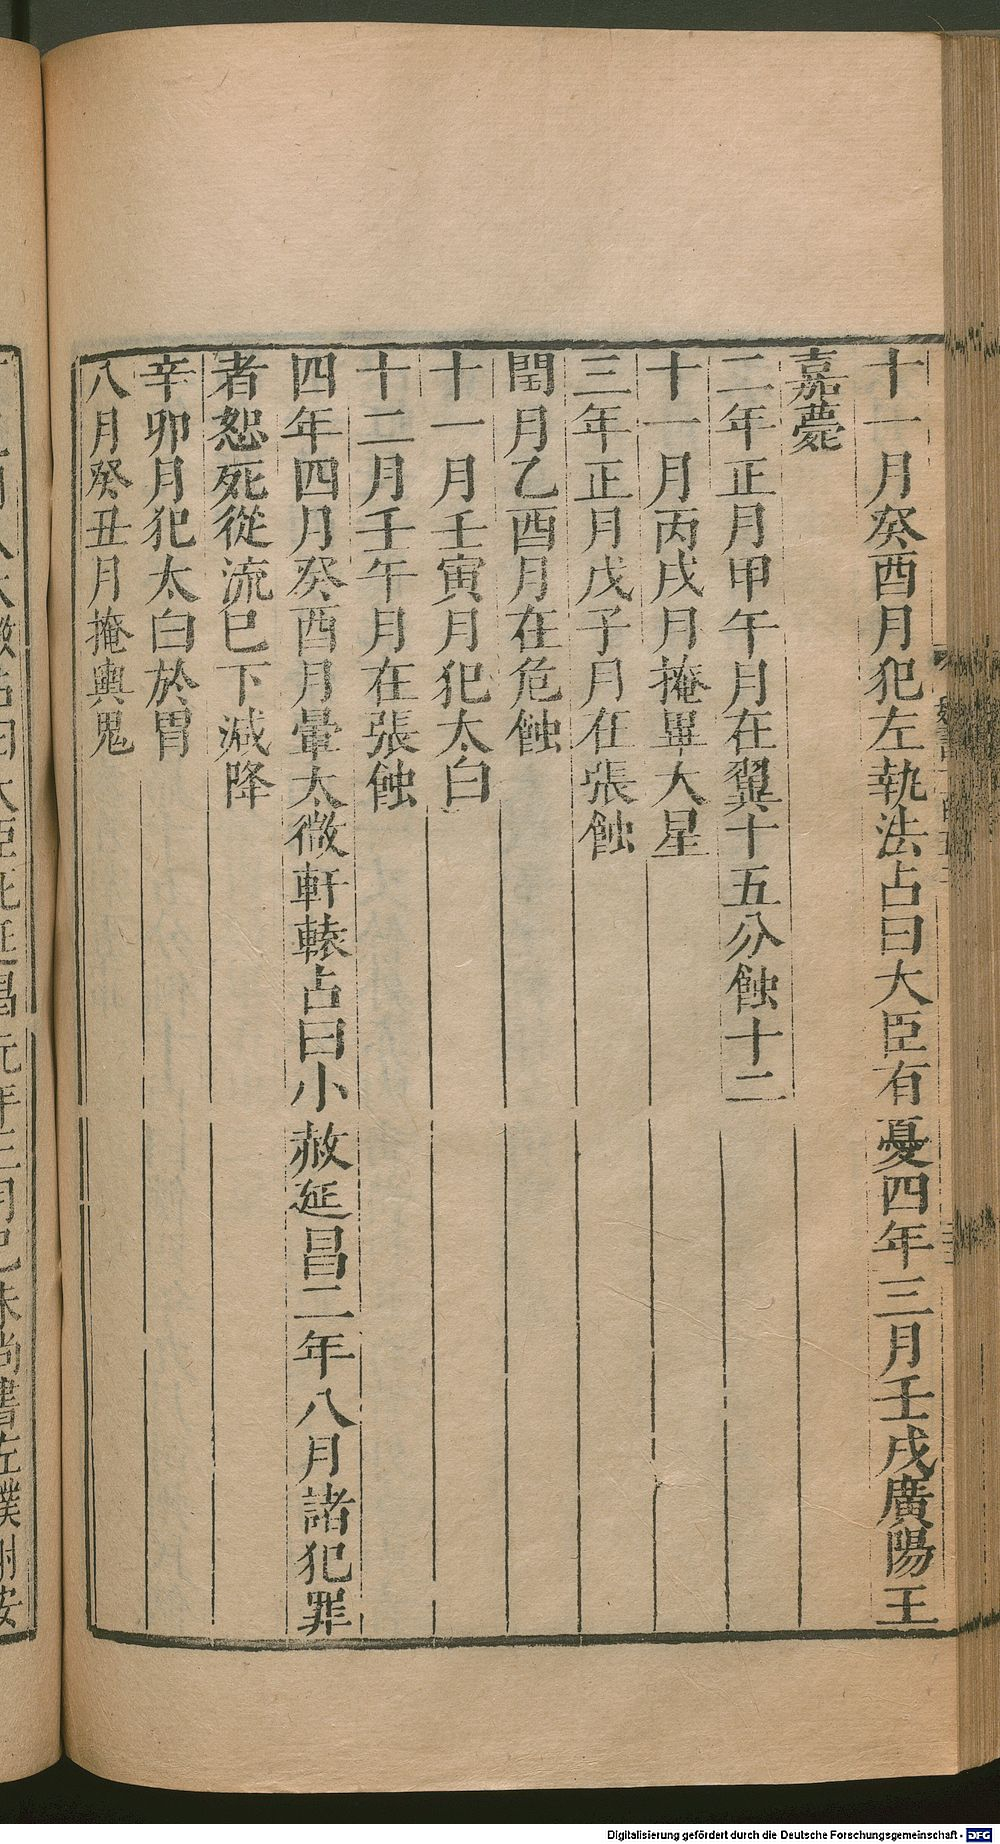 十一月癸酉月犯左執法占曰大臣有憂四年三月壬戌廣陽王
嘉薨
二年正月甲午月在翼十五分蝕十二
十一月丙戌月掩畢大星
三年正月戊子月在張蝕
閏月乙酉月在危蝕
十一月壬寅月犯太白
十二月壬午月在張蝕
四年四月癸酉月暈太微軒轅占曰小赦延昌二年八月諸犯罪
者恕死從流已下減降
辛卯月犯太白於胃
八月癸丑月掩輿鬼
大臣死延昌元年三月己未尚書左僕射安
Digitalisierung gefördert durch die Deutsche Forschungsgemeinschaft - DFG